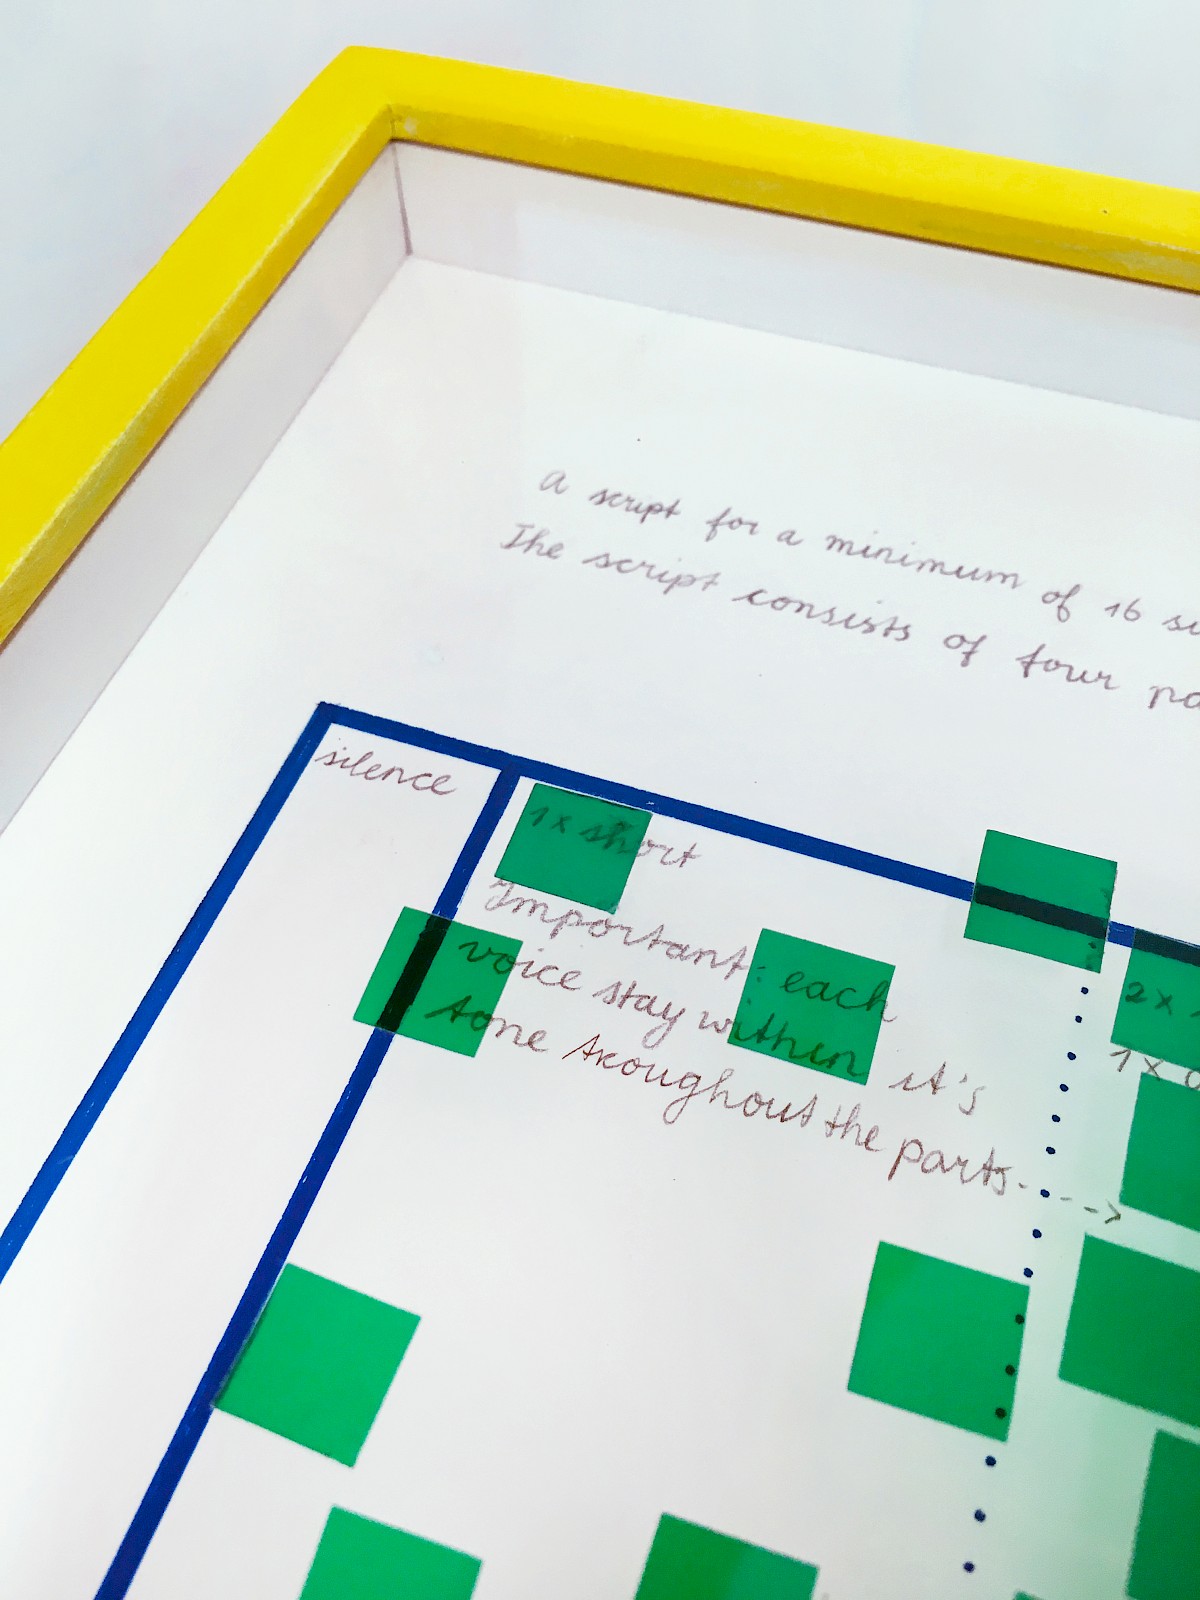 A script for a minimum of 16
The script consists of four
silence
1x short
Important: each
voice stay within it's
tone troughout the parts - - - ->
2x
1x